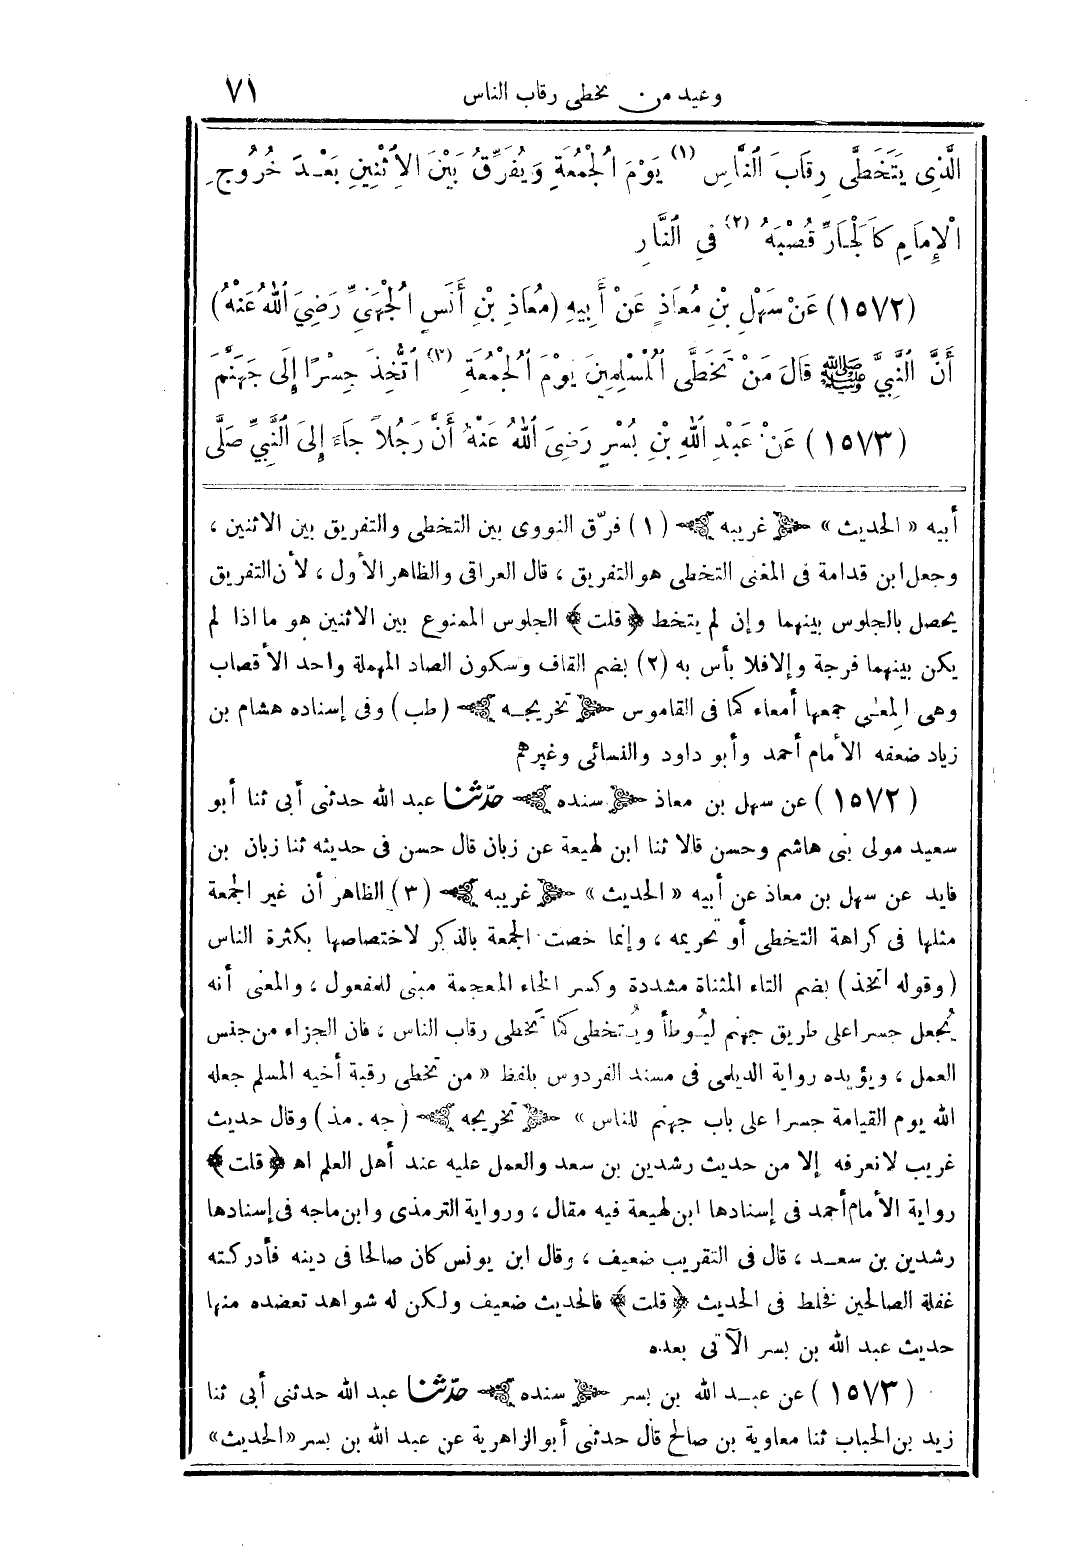 وعيد من تخطى رقاب الناس ٧١
الَّذِى يَتَخَطَّى رِقَابَ النَّاسِ (١) يَوْمَ الْجُمُعَةِ وَيُفَرِّقُ بَيْنَ الاِثْنَيْنِ بَعْدَ خُرُوجِ
الْإِمَامِ كَالْجَارِّ قُصْبَهُ (٢) فِى النَّارِ
(١٥٧٢) عَنْ سَهْلِ بْنِ مُعَاذٍ عَنْ أَبِيهِ (مُعَاذِ بْنِ أَنَسٍ الْجُهَنِىِّ رَضِىَ اللهُ عَنْهُ)
أَنَّ النَّبِىَّ ﷺ قَالَ مَنْ تَخَطَّى الْمُسْلِمِينَ يَوْمَ الْجُمُعَةِ (٣) اتُّخِذَ جِسْرًا إِلَى جَهَنَّمَ
(١٥٧٣) عَنْ عَبْدِ اللهِ بْنِ بُسْرٍ رَضِىَ اللهُ عَنْهُ أَنَّ رَجُلاً جَاءَ إِلَى النَّبِىِّ صَلَّى
أبيه « الحديث » غريبه (١) فرّق النووى بين التخطى والتفريق بين الاثنين ،
وجعل ابن قدامة فى المغنى التخطى هو التفريق ، قال العراقى والظاهر الأول ، لأن التفريق
يحصل بالجلوس بينهما وإن لم يتخط ﴿ قلت ﴾ الجلوس الممنوع بين الاثنين هو ما اذا لم
يكن بينهما فرجة وإلا فلا بأس به (٢) بضم القاف وسكون الصاد المهملة واحد الأقصاب
وهى المعى جمعها أمعاء كما فى القاموس تخريجه (طب) وفى إسناده هشام بن
زياد ضعفه الأمام أحمد وأبو داود والنسائى وغيرهم
(١٥٧٢) عن سهل بن معاذ سنده حدّثنا عبد الله حدثنى أبى ثنا أبو
سعيد مولى بنى هاشم وحسن قالا ثنا ابن لهيعة عن زبان قال حسن فى حديثه ثنا زبان بن
فايد عن سهل بن معاذ عن أبيه « الحديث » غريبه (٣) الظاهر أن غير الجمعة
مثلها فى كراهة التخطى أو تحريمه ، وإنما خصت الجمعة بالذكر لاختصاصها بكثرة الناس
(وقوله اتخذ) بضم التاء المثناة مشددة وكسر الخاء المعجمة مبنى للمفعول ، والمعنى أنه
يُجعل جسرا على طريق جهنم ليُوطأ ويُتخطى كما تَخطى رقاب الناس ، فان الجزاء من جنس
العمل ، ويؤيده رواية الديلمى فى مسند الفردوس بلفظ « من تخطى رقبة أخيه المسلم جعله
الله يوم القيامة جسرا على باب جهنم للناس » تخريجه (جه . مذ) وقال حديث
غريب لا نعرفه إلا من حديث رشدين بن سعد والعمل عليه عند أهل العلم اه ﴿ قلت ﴾
رواية الأمام أحمد فى إسنادها ابن لهيعة فيه مقال ، ورواية الترمذى وابن ماجه فى إسنادها
رشدين بن سعد ، قال فى التقريب ضعيف ، وقال ابن يونس كان صالحا فى دينه فأدركته
غفلة الصالحين فخلط فى الحديث ﴿ قلت ﴾ فالحديث ضعيف ولكن له شواهد تعضده منها
حديث عبد الله بن بسر الآتى بعده
(١٥٧٣) عن عبد الله بن بسر سنده حدّثنا عبد الله حدثنى أبى ثنا
زيد بن الحباب ثنا معاوية بن صالح قال حدثنى أبو الزاهرية عن عبد الله بن بسر «الحديث»